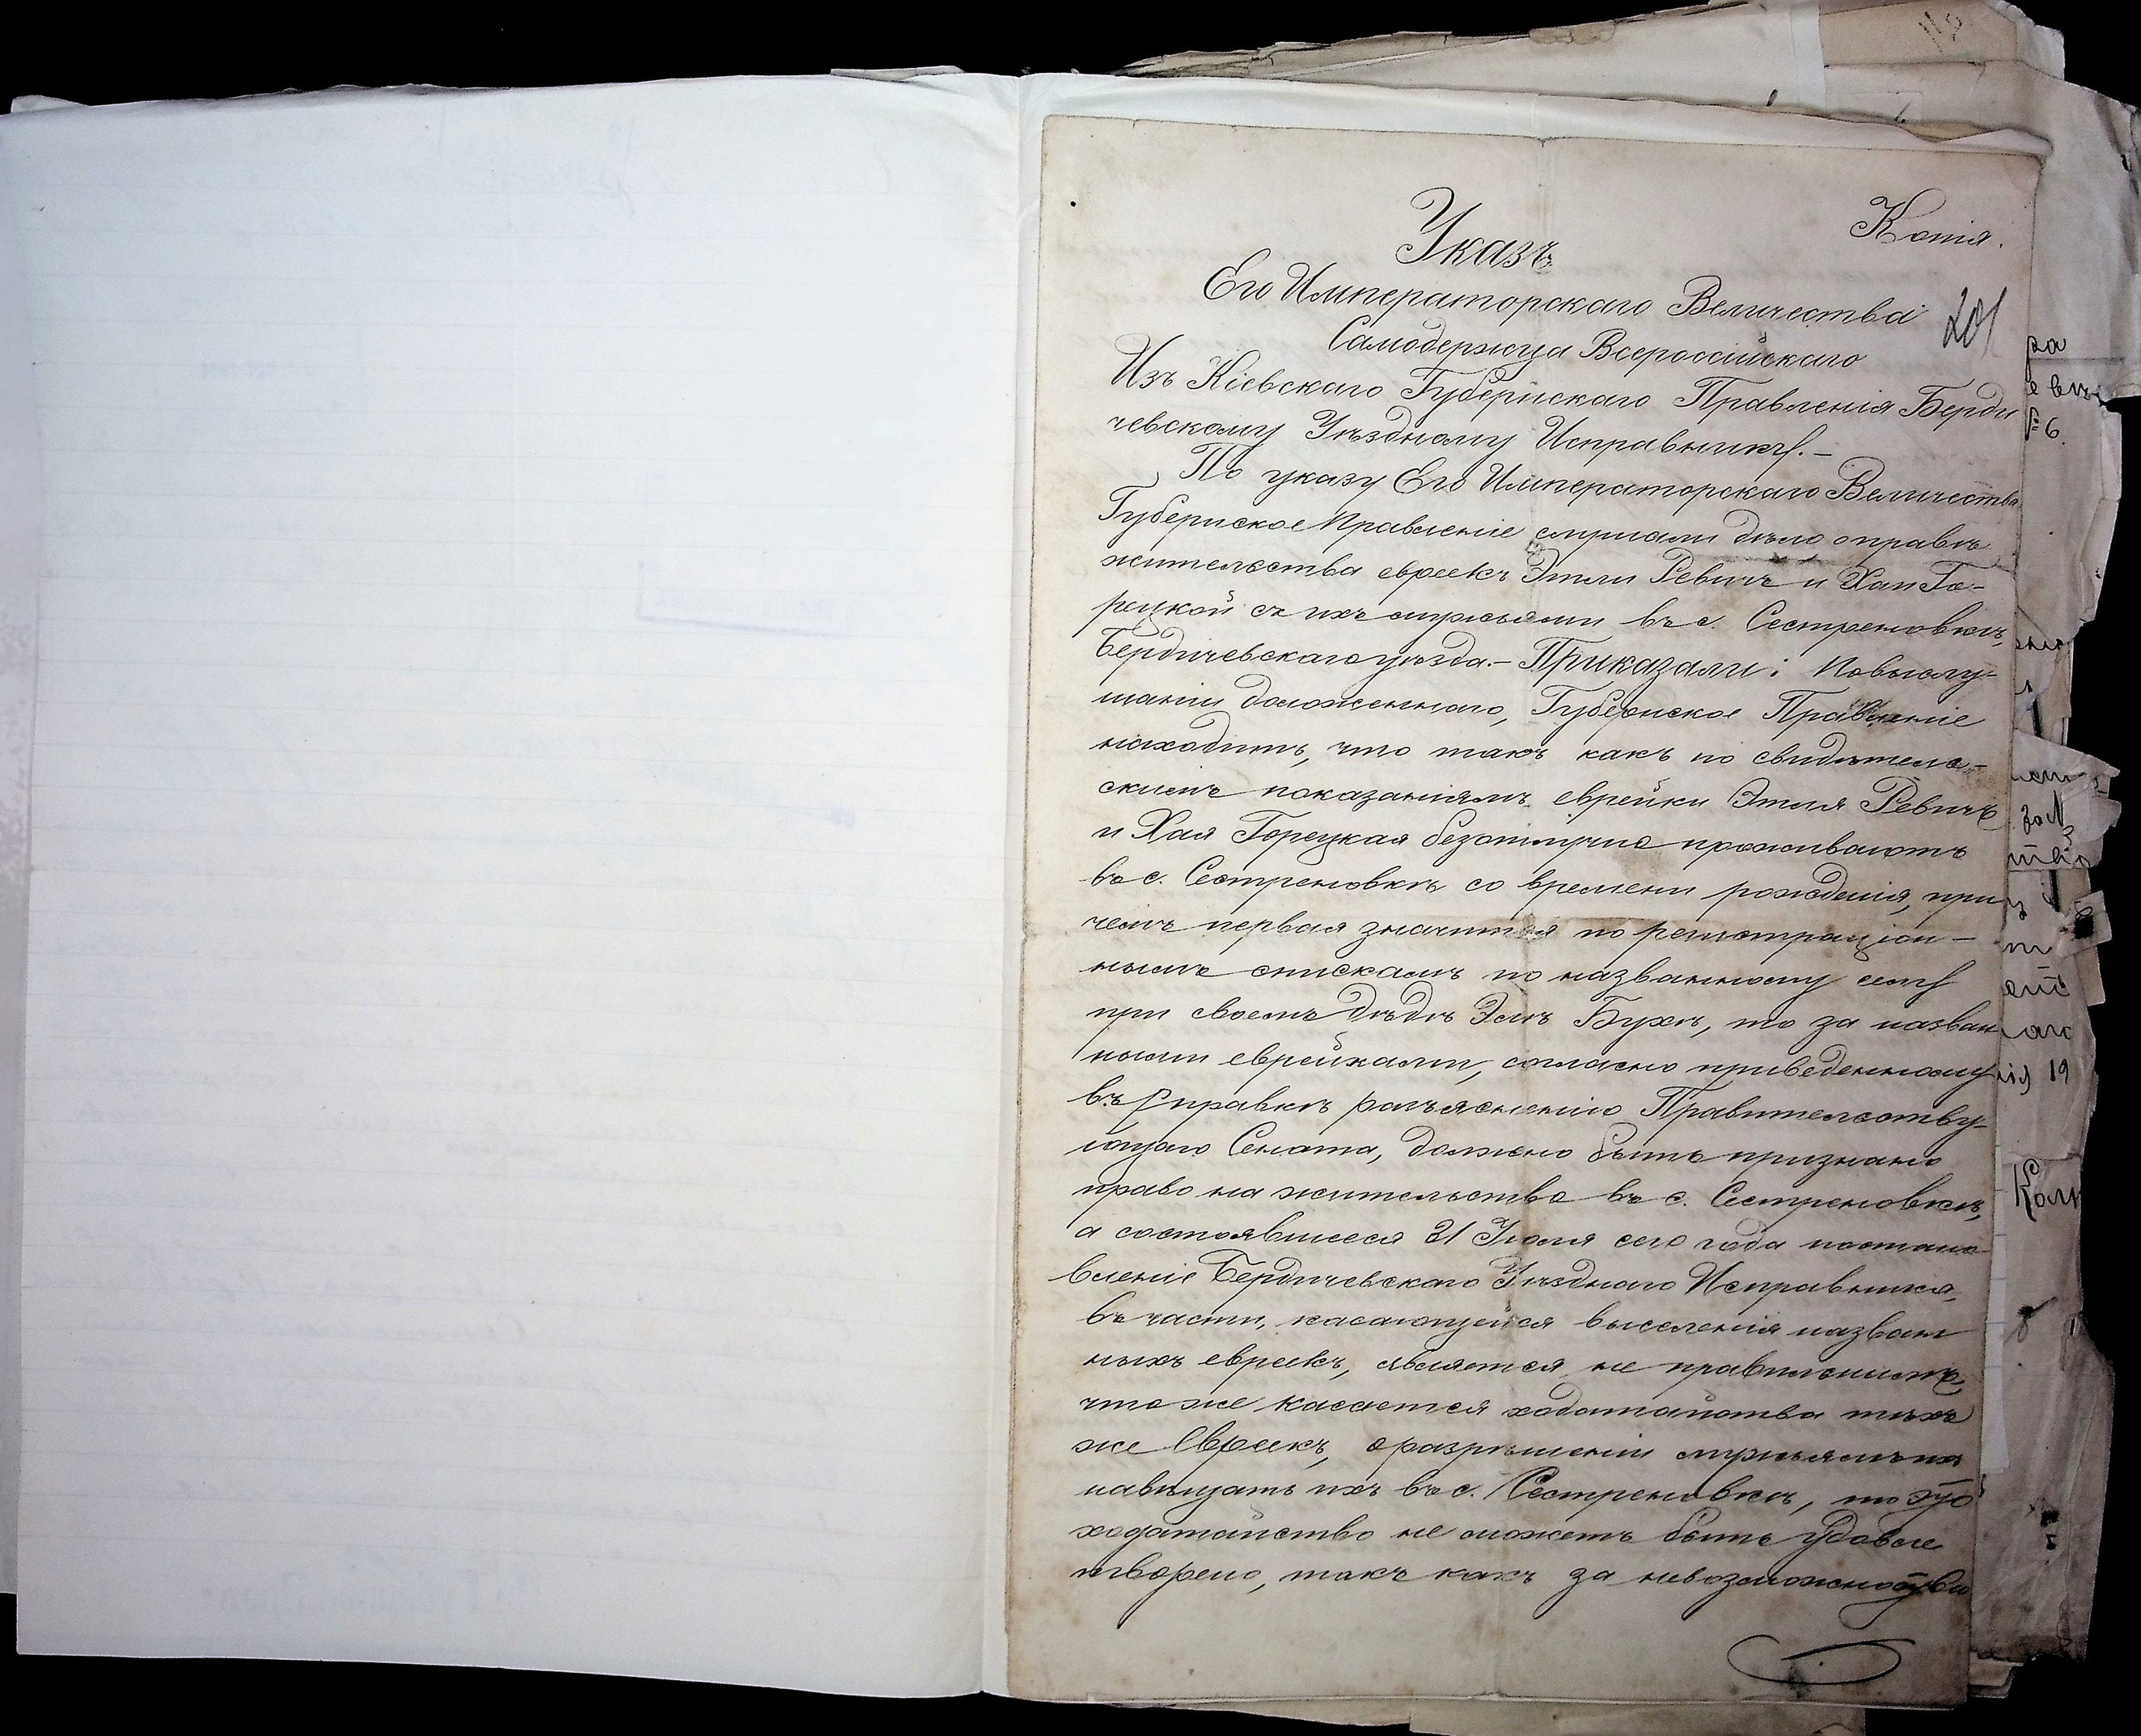 Копія.
Указъ
Его Императорскаго Величества
201
Самодержца Всероссійскаго
Изъ Кіевскаго Губернскаго Правленія Берди
чевскому Уѣздному Исправнику.—
По указу Его Императорскаго Величества
Губернское Правленіе слушали дѣло о правѣ
жительства евреекъ Этли Ревичъ и Хаи Го-
рецкой съ ихъ мужьями въ с. Сестреновкѣ,
Бердичевскаго уѣзда.— Приказали: По выслу-
шаніи доложеннаго, Губернское Правленіе
находитъ, что такъ какъ по свидѣтель-
скимъ показаніямъ еврейки Этля Ревичъ
и Хая Горецкая безотлучно проживаютъ
въ с. Сестреновкѣ со времени рожденія, при
чемъ первая значится по регистраціон-
нымъ спискамъ по названному селу
при своемъ дѣдѣ Элѣ Бухѣ, то за назван
ными еврейками, согласно приведенному
въ справкѣ разъясненію Правительству-
ющаго Сената, должно быть признано
право на жительство въ с. Сестреновкѣ,
а состоявшееся 21 Іюля сего года постано-
вленіе Бердичевскаго Уѣзднаго Исправника,
въ части, касающейся выселенія назван
ныхъ евреекъ, является не правильнымъ,
что же касается ходатайства тѣхъ
же Евреекъ, о разрѣшеніи мужьямъ ихъ
навѣщать ихъ въ с. Сестреновкѣ, то это
ходатайство не можетъ быть удовле
творено, такъ какъ за невозможностью
ра
№ 6.
зоМ
ія 19